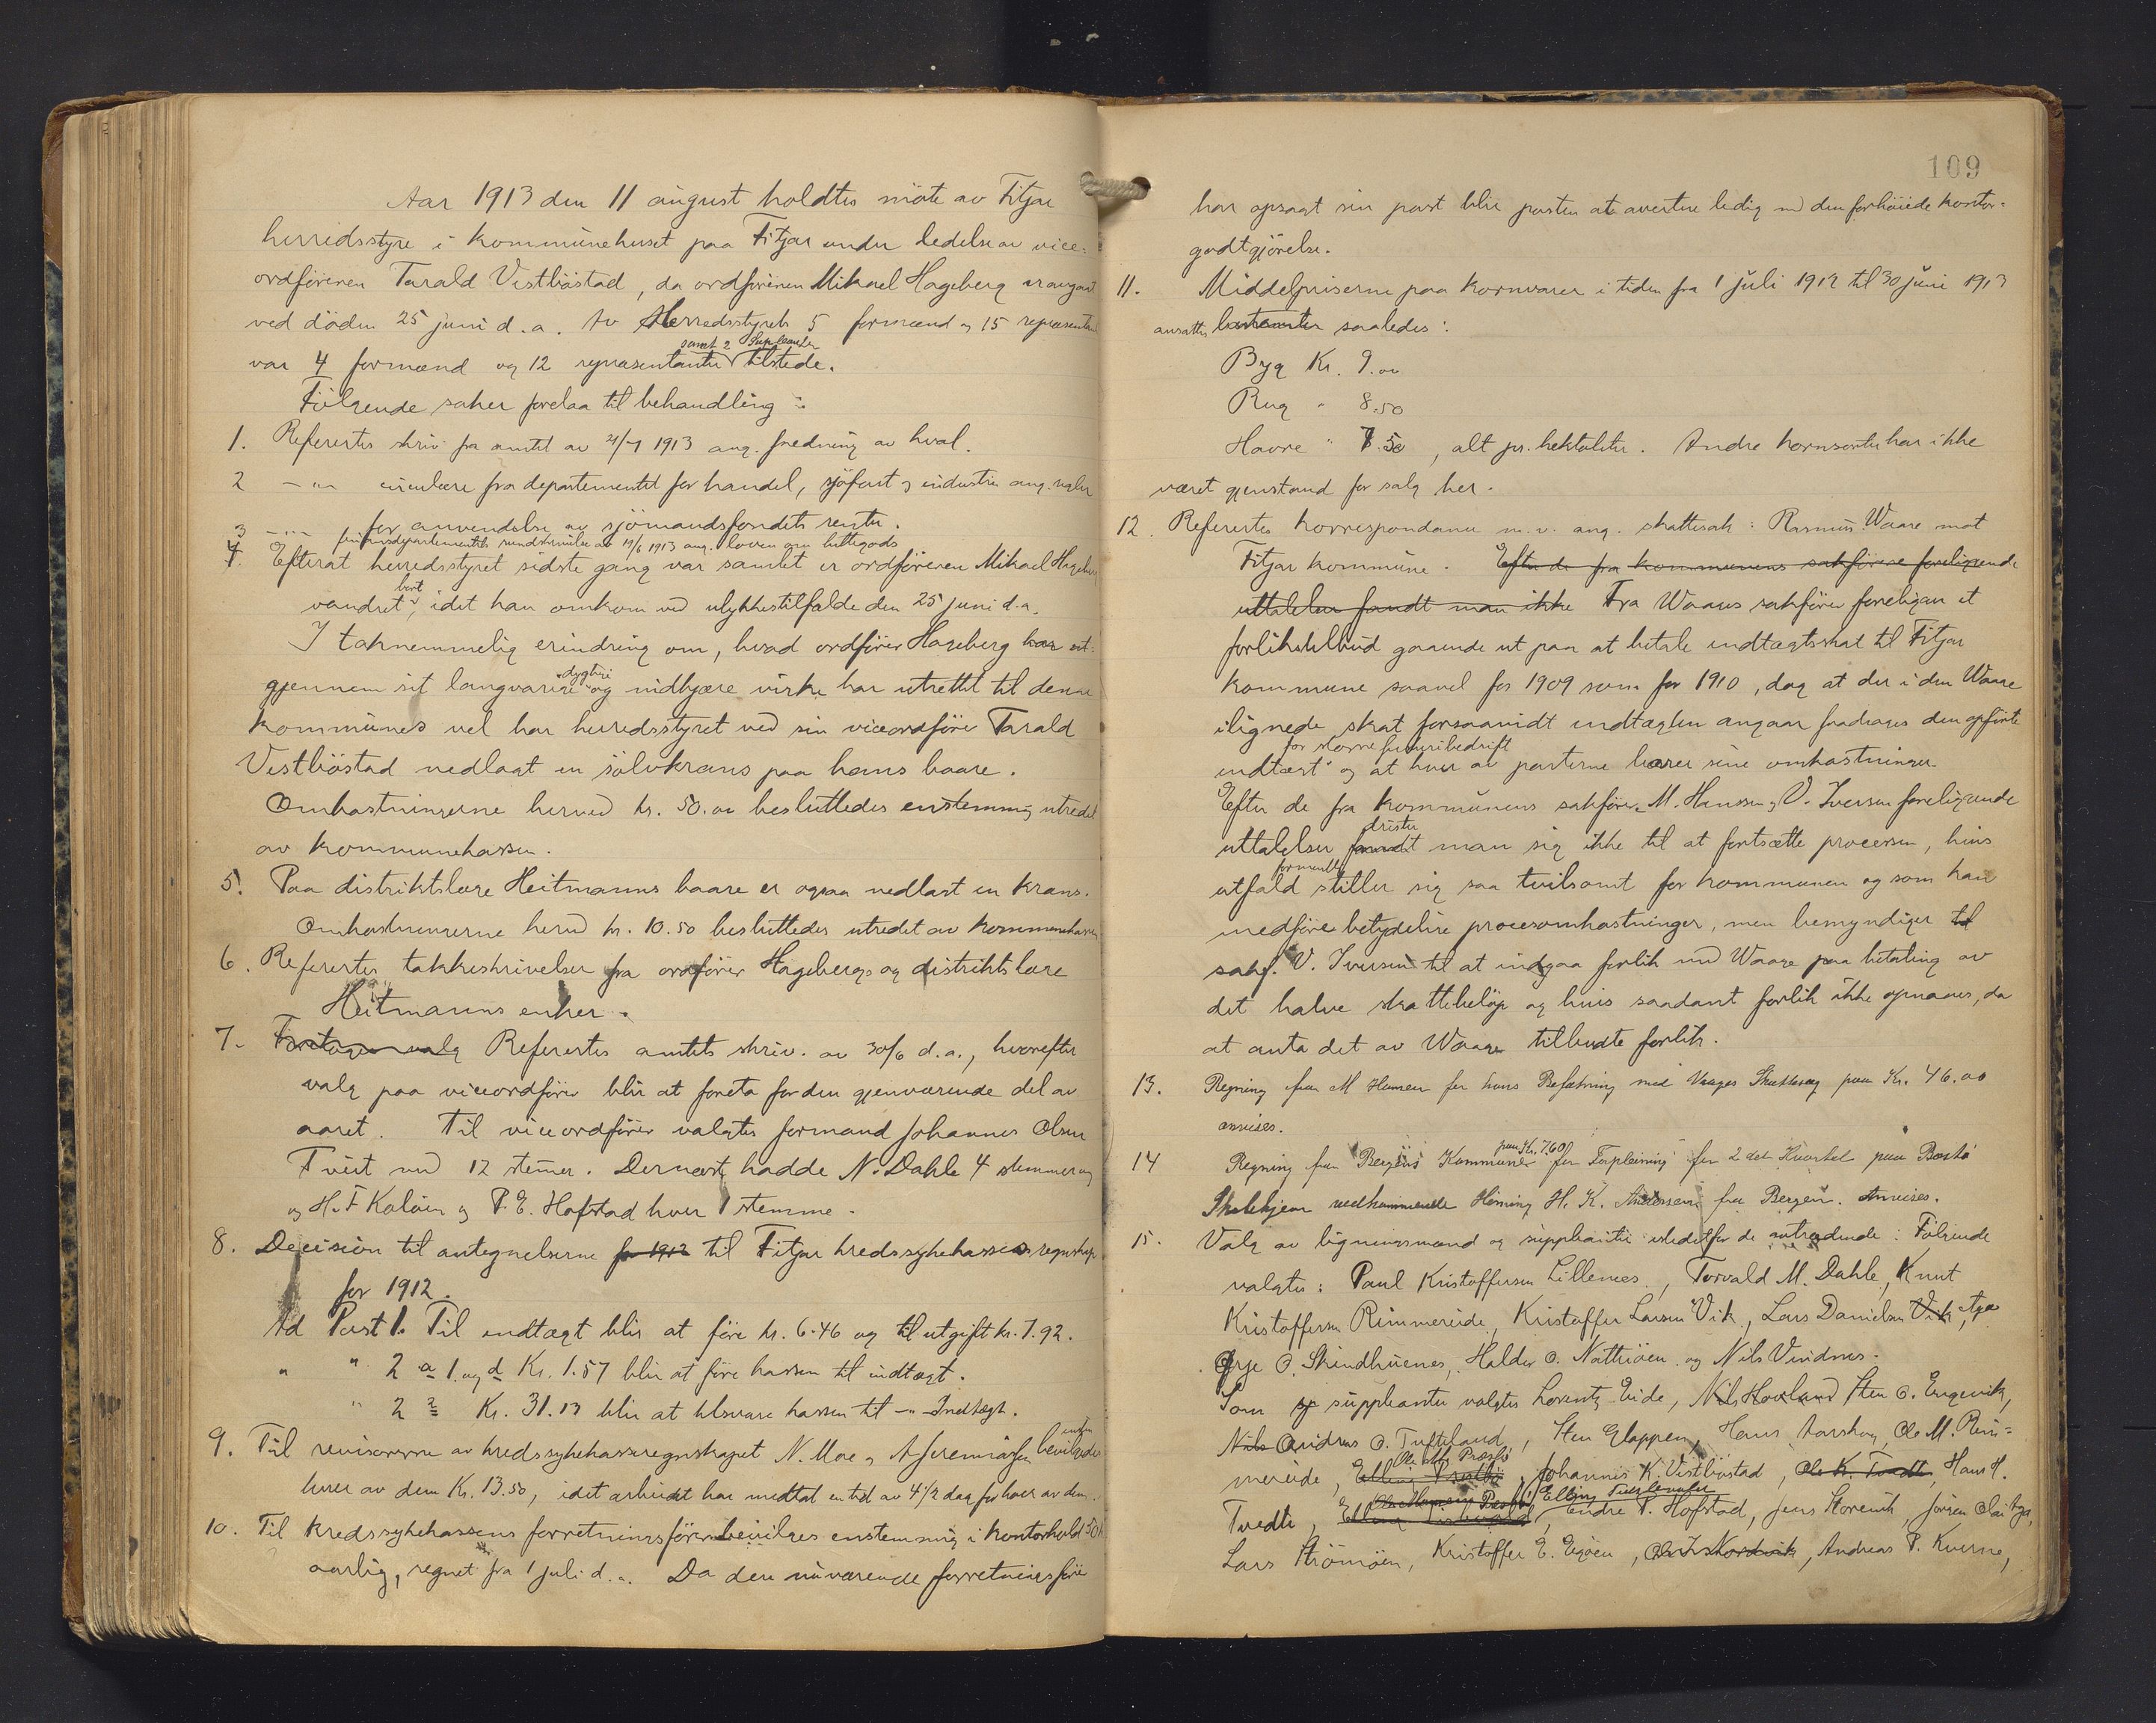 Aar 1913 den 11 august holdtes möte av Fitjar
herredsstyre i kommunehuset paa Fitjar under ledelse av vice-
ordföreren Tarald Vestböstad, da ordföreren Mikael Hageberg er avgaat
ved döden 25 juni d.a. Av Herredsstyrets 5 formænd og 15 repræsentanter
samt 2 Supleanter
var 4 formænd og 12 repræsentanter tilstede.
Fölgende saker forelaa til behandling:
1. Referertes skriv fra amtet av 21/7 1913 ang. fredning av hval.
2 -"- cirkulære fra departementet for handel, sjöfart og industri ang. regler
for anvendelse av sjömandsfondets renter.
3 -"- finansdepartementets rundskrivelse av 19/6 1913 ang. loven om hittegods
4. Efterat herredsstyret sidste gang var samlet er ordföreren Mikael Hageberg
vandret bort, idet han omkom ved ulykkestilfælde den 25 juni d.a.
I taknemmelig erindring om, hvad ordförer Hageberg har
gjennem sit langvarige dygtige og nidkjære virke har utrettet til denne
kommunes vel har herredsstyret ved sin viceordförer Tarald
Vestböstad nedlagt en sölvkrans paa hans baare.
Omkostningerne herved kr. 50.00 besluttedes enstemmig utredet
av kommunekassen.
5. Paa distriktslæge Heitmanns baare er ogsaa nedlagt en krans.
Omkostningerne herved kr. 10.50 besluttedes utredet av kommunekassen
6. Referertes takkeskrivelser fra ordförer Hagebergs og distriktslæge
Heitmanns enker.
7. Foretages valg Referertes amtets skriv. av 30/6 d.a., hvorefter
valg paa viceordförer blir at foreta for den gjenværende del av
aaret. Til viceordförer valgtes formand Johannes Olsen
Tveit med 12 stemer. Dernæst hadde N. Dahle 4 stemmer og
og H. F. Kalöen og P. E. Hofstad hver 1 stemme.
8. Decision til antegnelserne for 1912 til Fitjar kredssykekasses regnskap
for 1912.
Ad Post 1. Til indtægt blir at före kr. 6.46 og til utgift kr. 7.92.
" " 2 a 1. og d Kr. 1.57 blir at före kassen til indtægt.
" 2 2 Kr. 31.13 blir at tilsvare kassen til -"- Indtægt.
9. Til revisorerne av kredssykekasseregnskapet N. Moe og A Jeremiassen bevilgedes
hver av dem Kr. 13.50, idet arbeidet har medtat en tid av 4 1/2 dag for hver av dem.
10. Til kredssykekassens forretningsförer bevilges enstemmig i kontorhold 50 k
aarlig, regnet fra 1 juli d.a. Da den nuværende forretningsförer
109
har opsagt sin post blir posten at avertere ledig med den forhöiede kontor-
godtgjörelse.
11. Middelpriserne paa kornvarer i tiden fra 1 juli 1912 til 30 juni 1913
ansattes saaledes:
Byg Kr. 9.00
Rug " 8.50
Havre " 7.50, alt pr. hektoliter. Andre kornsorter har ikke
været gjenstand for salg her.
12. Referertes korrespondance m.v. ang. skattesak: Rasmus Waage mot
Fitjar kommune. Efter de fra kommunens sakförere foreligende
uttalelser fandt man ikke Fra Waages sakförer foreligger et
forlikstilbud gaaende ut paa at betale indtægtsskat til Fitjar
kommune saavel for 1909 som for 1910, dog at der i den Waage
ilignede skat forsaavidt indtægten angaar fradrages den opförte
for större fiskeribedrift
indtægt og at hver av parterne bærer sine omkostninger.
Efter de fra kommunens sakförere M. Hansen og V. Iversen foreligende
drister
uttalelser fandt man sig ikke til at fortsætte processen, hvis
formentlig
utfald stiller sig saa tvilsomt for kommunen og som kan
medföre betydelige procesomkostninger, men bemyndiger til
sakf. V. Iversen til at indgaa forlik med Waage paa betaling av
det halve skattebelöp og hvis saadant forlik ikke opnaaes, da
at anta det av Waage tilbudte forlik.
13. Regning fra M Hansen for hans Befatning med Vaages Skattesag paa Kr. 46.00
anvises.
14 Regning fra Bergens Kommune paa Kr. 7.60 for Forpleining for 2det Kvartal paa Bastö
Skolehjem vedkommende Henning H. K. Andersen fra Bergen. Anvises.
15. Valg av ligningsmænd og suppleanter istedetfor de uttrædende: Fölgende
valgtes: Paul Kristoffersen Lillenes, Torvald M. Dahle, Knut
Kristoffersen Rimmereide, Kristoffer Larsen Vik, Lars Danielsen Vik, Aga
Örje O. Skindhuenes, Haldor O. Nattröen og Nils Vindnes.
Som suppleanter valgtes Lorentz Eide, Nils Hovland Sten O. Engevik,
Nils Andreas O. Tufteland, Sten Glappen, Hans Aarskog, Ole M. Rim-
mereide, Johannes K. Vestböstad, Ole K. Tvedte Hans H.
Tvedte, Endre P. Hofstad, Jens Storevik, Jörgen Olai Aga,
Lars Strömöen, Kristoffer E. Engöen, Andreas P. Kverne,